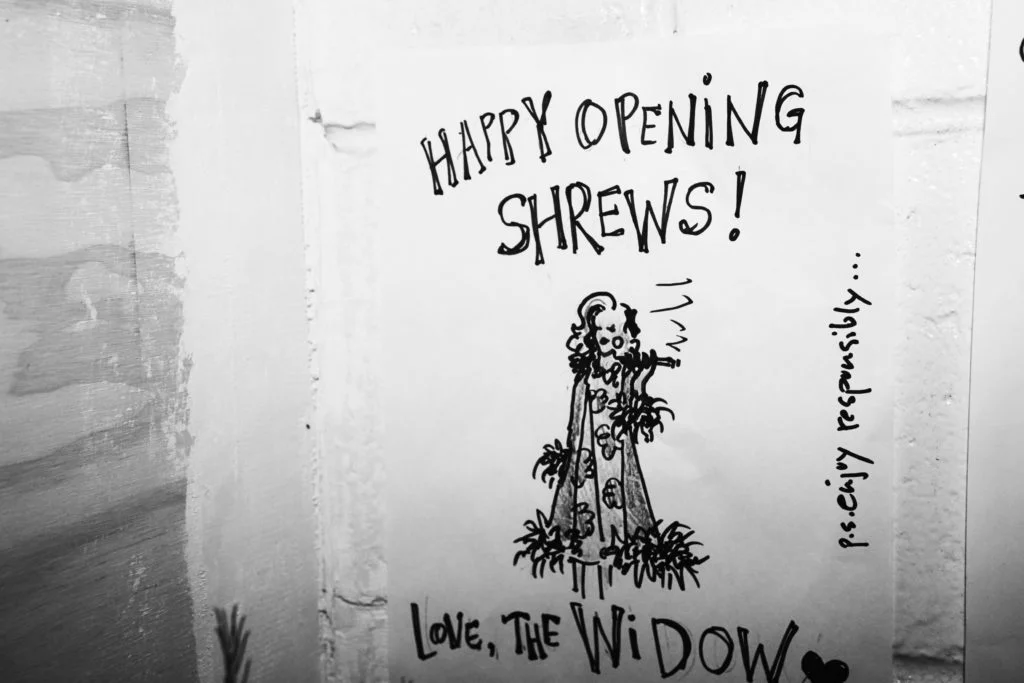 HAPPY OPENING
SHREWS!
p.s. enjoy responsibly...
LOVE, THE WiDOW